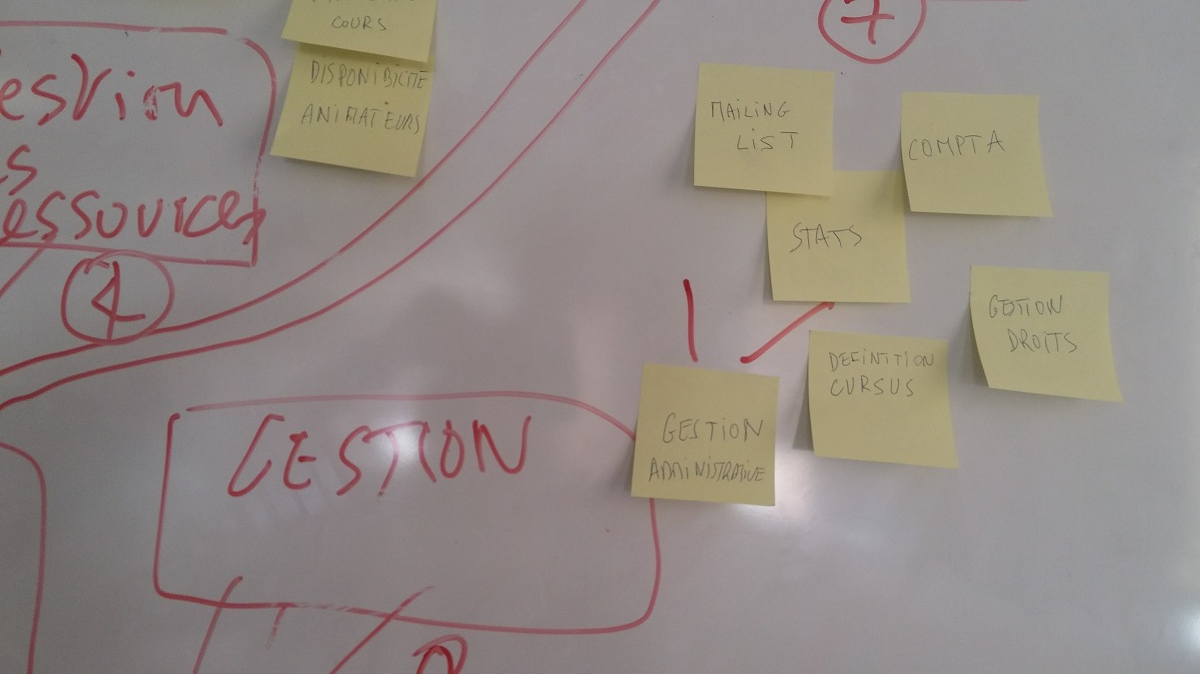 COURS
DISPONIBILITE
ANIMATEURS
MAILING
LIST
COMPTA
STATS
GETION
DROITS
DEFINITION
CURSUS
GESTION
ADMINISTRATIVE
GESTION
7
4